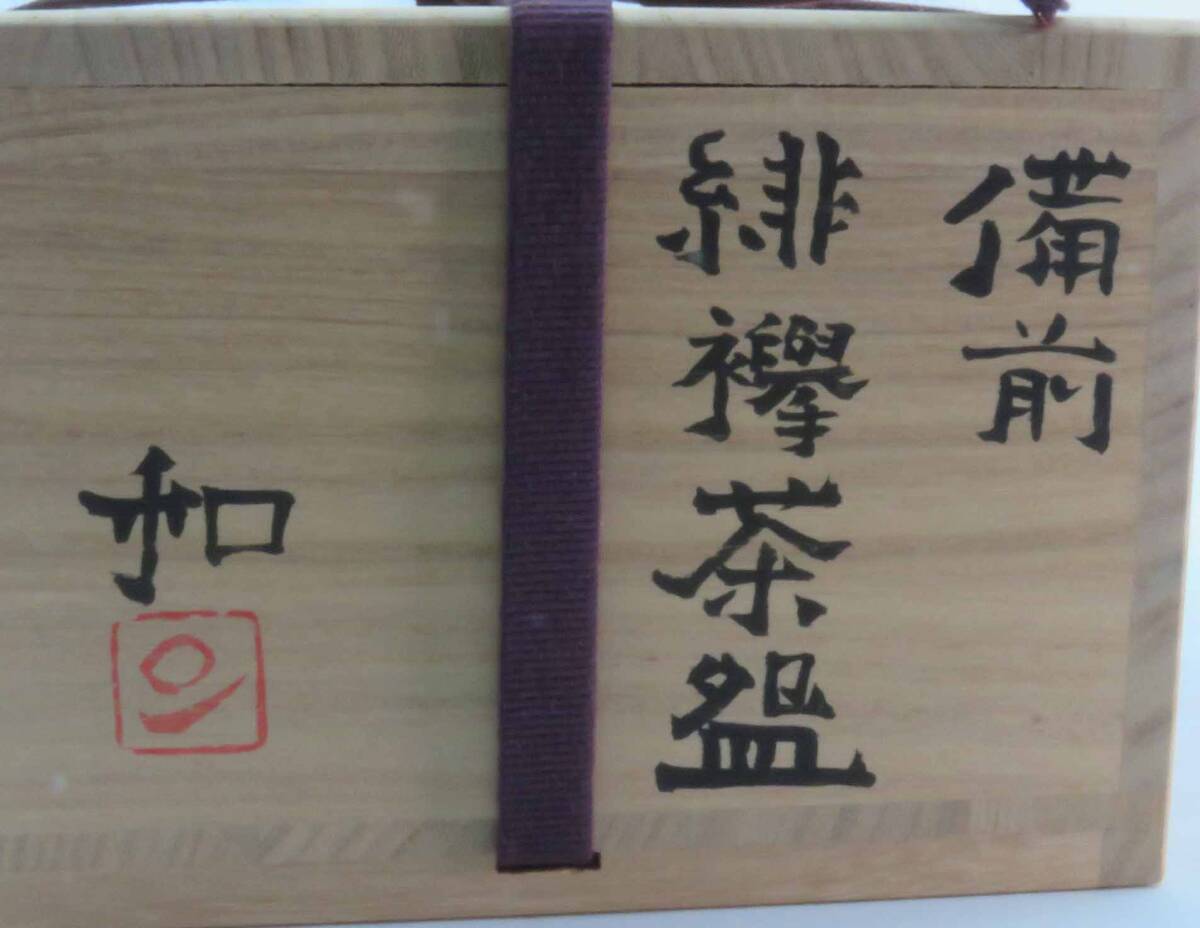 備前
緋襷茶盌
和